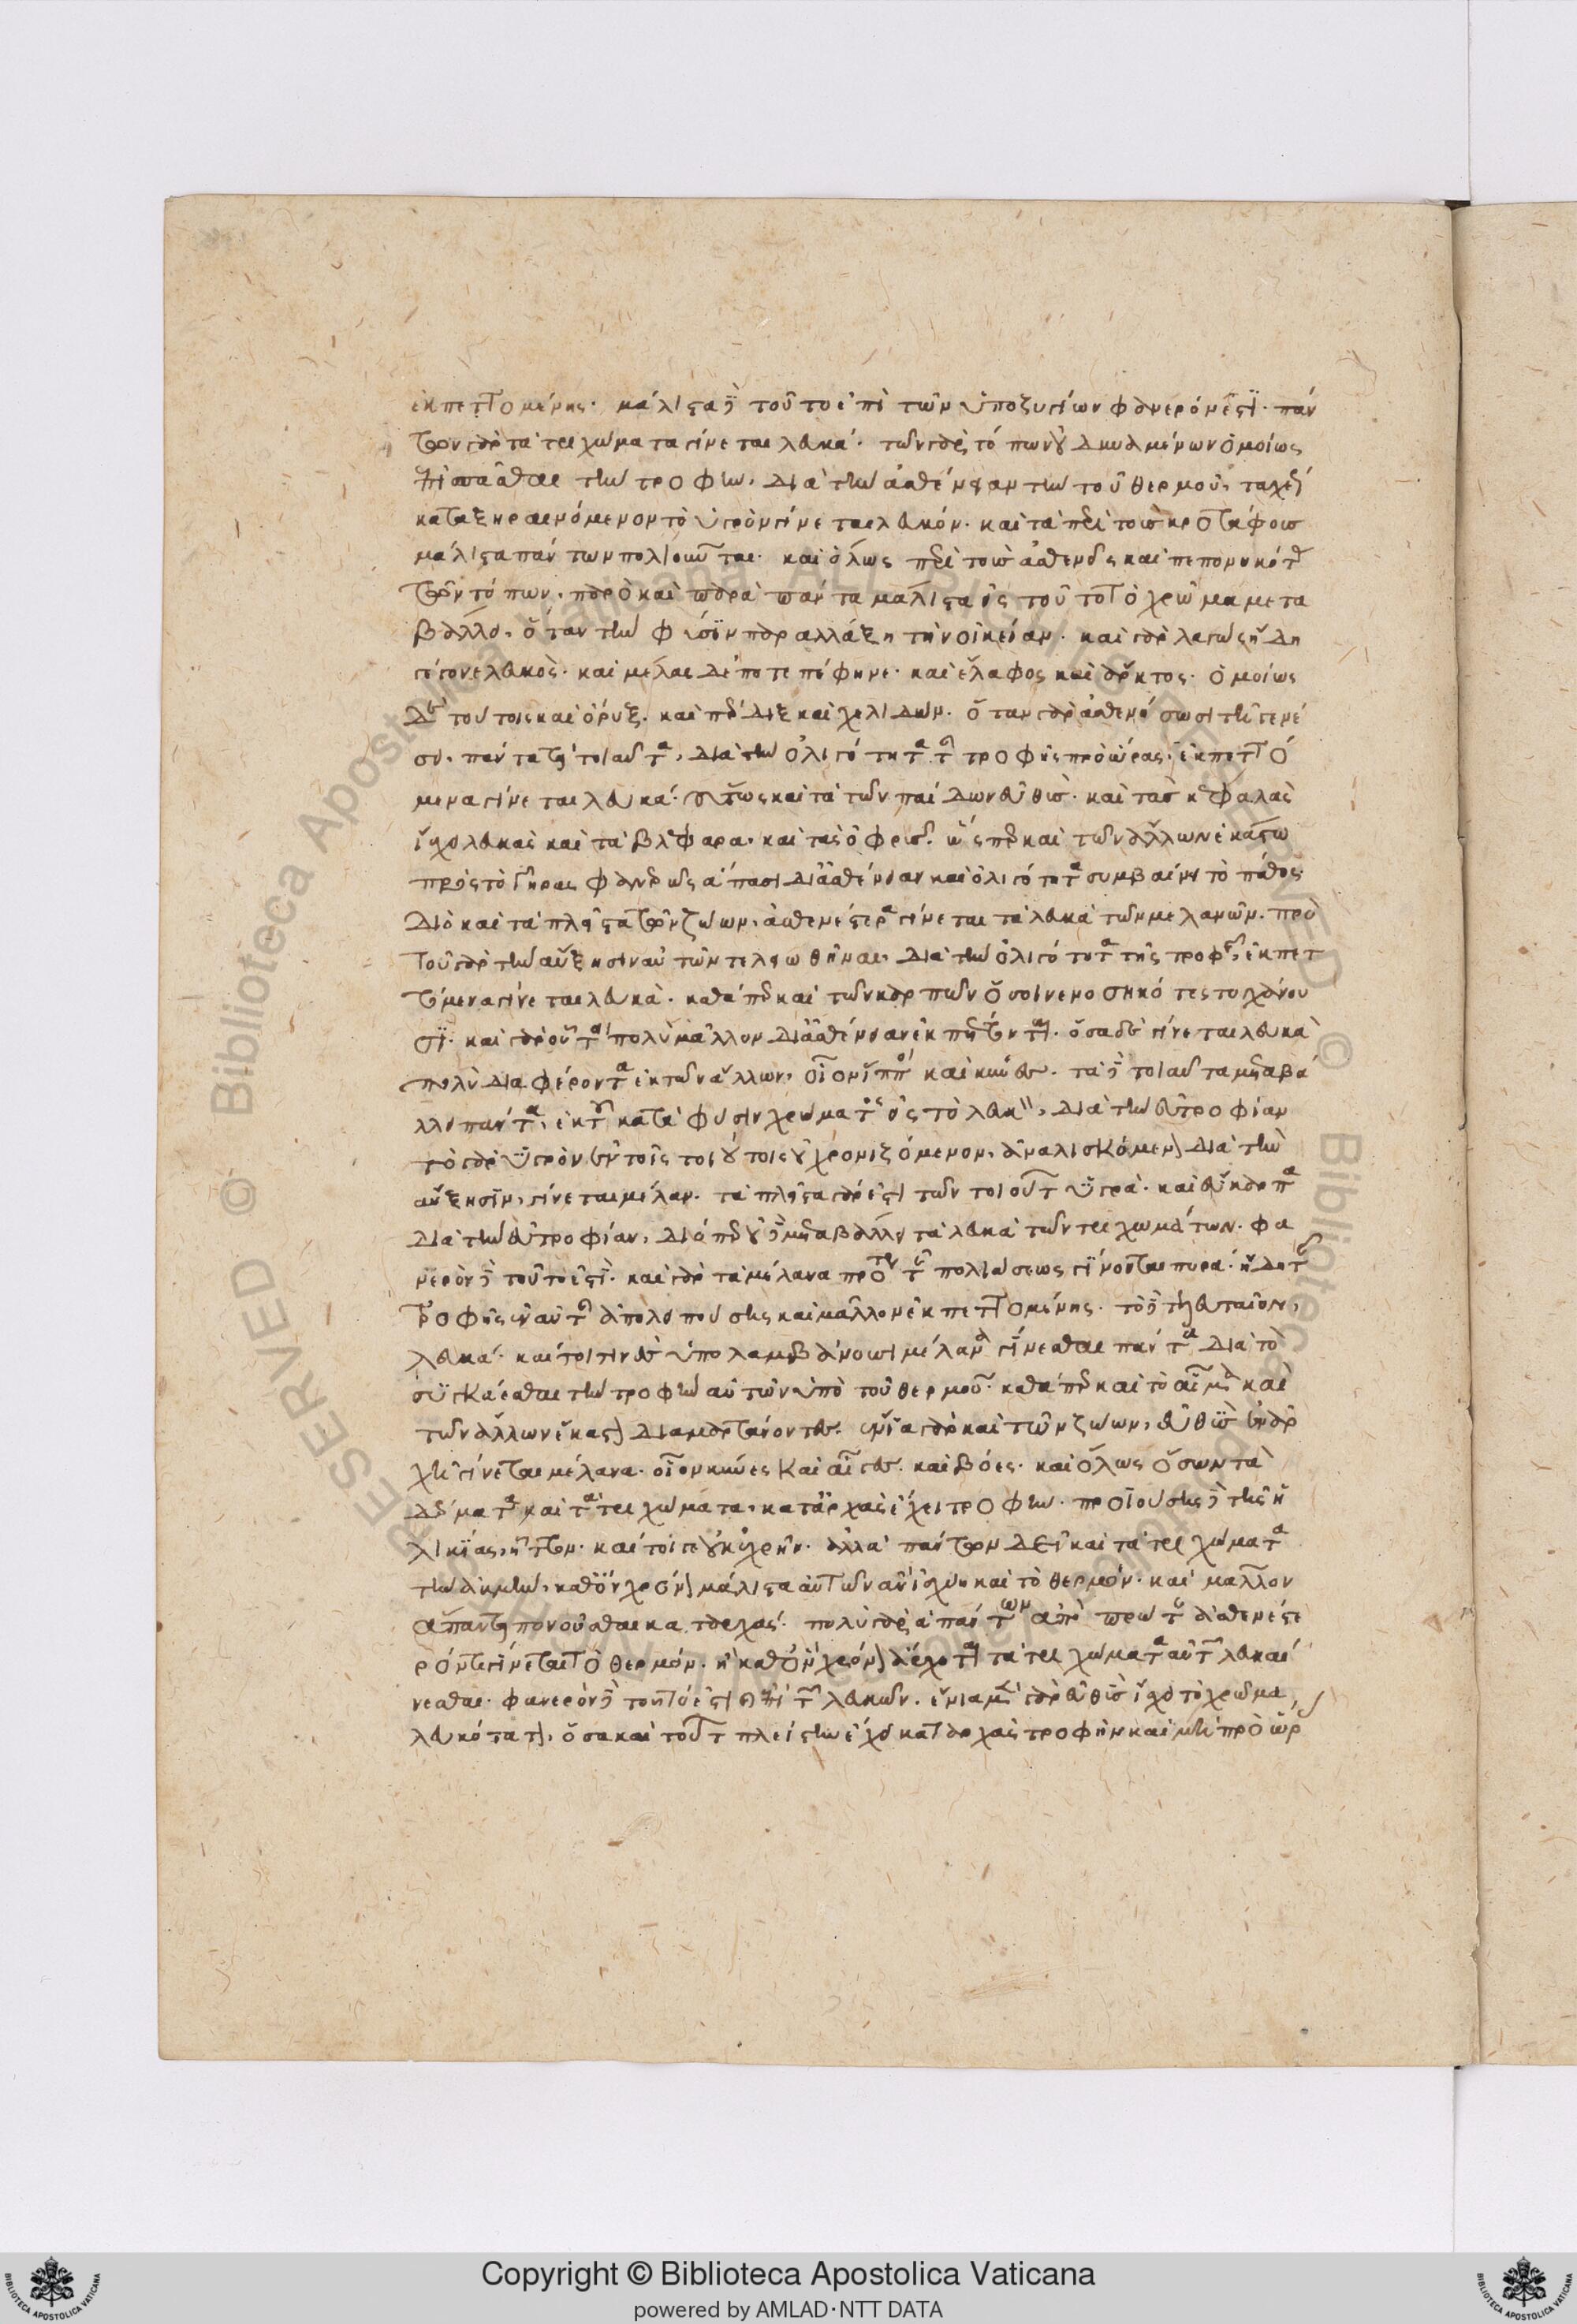 ἐκπεττομένης. μάλιστα δὲ τοῦτο ἐπὶ τῶν ὑποζυγίων φανερόν ἐστι. πάν
των γὰρ τὰ τριχώματα γίνεται λευκά. τῶν γὰρ τόπων οὐ δυναμένων ὁμοίως
ἐπισπᾶσθαι τὴν τροφὴν, διὰ τὴν ἀσθένειαν τὴν τοῦ θερμοῦ, ταχέως
καταξηραινόμενον τὸ ὑγρὸν γίνεται λευκόν. καὶ τὰ περὶ τοὺς κροτάφους
μάλιστα πάντων πολιοῦνται. καὶ ὅλως περὶ τοὺς ἀσθενεῖς καὶ πεπονηκότας
τῶν τόπων. παρὸ καὶ παρὰ πάντα μάλιστα εἰς τοῦτο τὸ χρῶμα μετα
βάλλει, ὅταν τὴν φύσιν παραλλάξῃ τὴν οἰκείαν. καὶ γὰρ λαγὼς ἤδη
γέγονε λευκὸς. καὶ μέλας δέ ποτε πέφηνε. καὶ ἔλαφος καὶ ἄρκτος. ὁμοίως
δὲ τούτοις καὶ ὄρυξ. καὶ πέρδιξ καὶ χελιδών. ὅταν γὰρ ἀσθενήσωσι τῇ γενέ
σει, πάντα τὰ τοιαῦτα, διὰ τὴν ὀλιγότητα τῆς τροφῆς πρὸ ὥρας ἐκπεττό
μενα γίνεται λευκά. οὕτως καὶ τὰ τῶν παίδων εὐθὺς. καὶ τὰς κεφαλὰς
ἴσχει λευκὰς καὶ τὰ βλέφαρα, καὶ τὰς ὀφρῦς. ὥσπερ καὶ τῶν ἄλλων ἑκάστῳ
πρὸς τὸ γῆρας φανερῶς ἅπασι δι' ἀσθένειαν καὶ ὀλιγότητα συμβαίνει τὸ πάθος
διὸ καὶ τὰ πλεῖστα τῶν ζώων, ἀσθενέστερα γίνεται τὰ λευκὰ τῶν μελάνων. πρὸ
τοῦ γὰρ τὴν αὔξησιν αὐτῶν τελειωθῆναι, διὰ τὴν ὀλιγότητα τῆς τροφῆς, ἐκπετ
τόμενα γίνεται λευκὰ. καθάπερ καὶ τῶν καρπῶν ὅσοι νενοσηκότες τυγχάνου
σι. καὶ γὰρ οὗτα πολὺ μᾶλλον δι' ἀσθένειαν ἐκπέττονται. ὅσα δὲ γίνεται λευκὰ
πολὺ διαφέροντα ἐκ τῶν ἄλλων, οἷον ἵπποι καὶ κύνες. τὰ δὲ τοιαῦτα μεταβά
λλει πάντα, ἐκ τοῦ κατὰ φύσιν χρώματος εἰς τὸ λευκὸν, διὰ τὴν εὐτροφίαν
τὸ γὰρ ὑγρὸν ἐν τοῖς τοιούτοις οὐ χρονιζόμενον, ἀναλισκόμενον διὰ τὴν
αὔξησιν, γίνεται μέλαν. τὰ πλεῖστα γάρ ἐστι τῶν τοιούτων ὑγρὰ. καὶ εὔκαρπα
διὰ τὴν εὐτροφίαν, διόπερ οὐδὲ μεταβάλλει τὰ λευκὰ τῶν τριχωμάτων. φα
νερὸν δὲ τοῦτό ἐστι. καὶ γὰρ τὰ μέλανα πρότερον τῆς πολιώσεως γίνονται πυρά. ἤδη τῆς
τροφῆς ἐν αὐτοῖς ἀπολειπούσης καὶ μᾶλλον ἐκπεττομένης. τὸ δὲ τελευταῖον,
λευκά. καίτοι τινὲς ὑπολαμβάνουσι μέλανα γίνεσθαι πάντα διὰ τὸ
συγκάεσθαι τὴν τροφὴν αὐτῶν ὑπὸ τοῦ θερμοῦ. καθάπερ καὶ τὸ αἷμα καὶ
τῶν ἄλλων ἕκαστον διαμαρτάνοντες. ἔνια γὰρ καὶ τῶν ζώων, εὐθὺς ἐν ἀρ
χῇ γίνεται μέλανα. οἷον κύνες καὶ αἶγες. καὶ βόες. καὶ ὅλως ὅσων τὰ
δέρματα καὶ τὰ τριχώματα, κατ' ἀρχὰς ἔχει τροφὴν. προϊούσης δὲ τῆς ἡ
λικίας, ἧττον. καίτοι γε οὐκ ἐχρῆν. ἀλλὰ πάντων δεῖ καὶ τὰ τριχώματα
τὴν ἀκμὴν, καθ' ὃν χρόνον μάλιστα αὐτῶν ἂν ἰσχύῃ καὶ τὸ θερμόν. καὶ μᾶλλον
ἅπαντα πονοῦσθαι κατ' ἀρχάς. πολὺ γὰρ ἁπάντων ἀπὸ πρώτης ἀσθενέστε
ρόν τι γίνεται τὸ θερμόν. ἢ καθ' ὃν χρόνον ἄρχονται τὰ τριχώματα αὐτῶν λευκαί
νεσθαι. φανερὸν δὲ τοῦτό ἐστι ἐπὶ τῶν λευκῶν. ἔνια μὲν γὰρ εὐθὺς ἴσχει τὸ χρῶμα,
λευκότατον, ὅσα καὶ τούτων πλείστην ἔχει κατ' ἀρχὰς τροφὴν καὶ μὴ πρὸ ὥρας